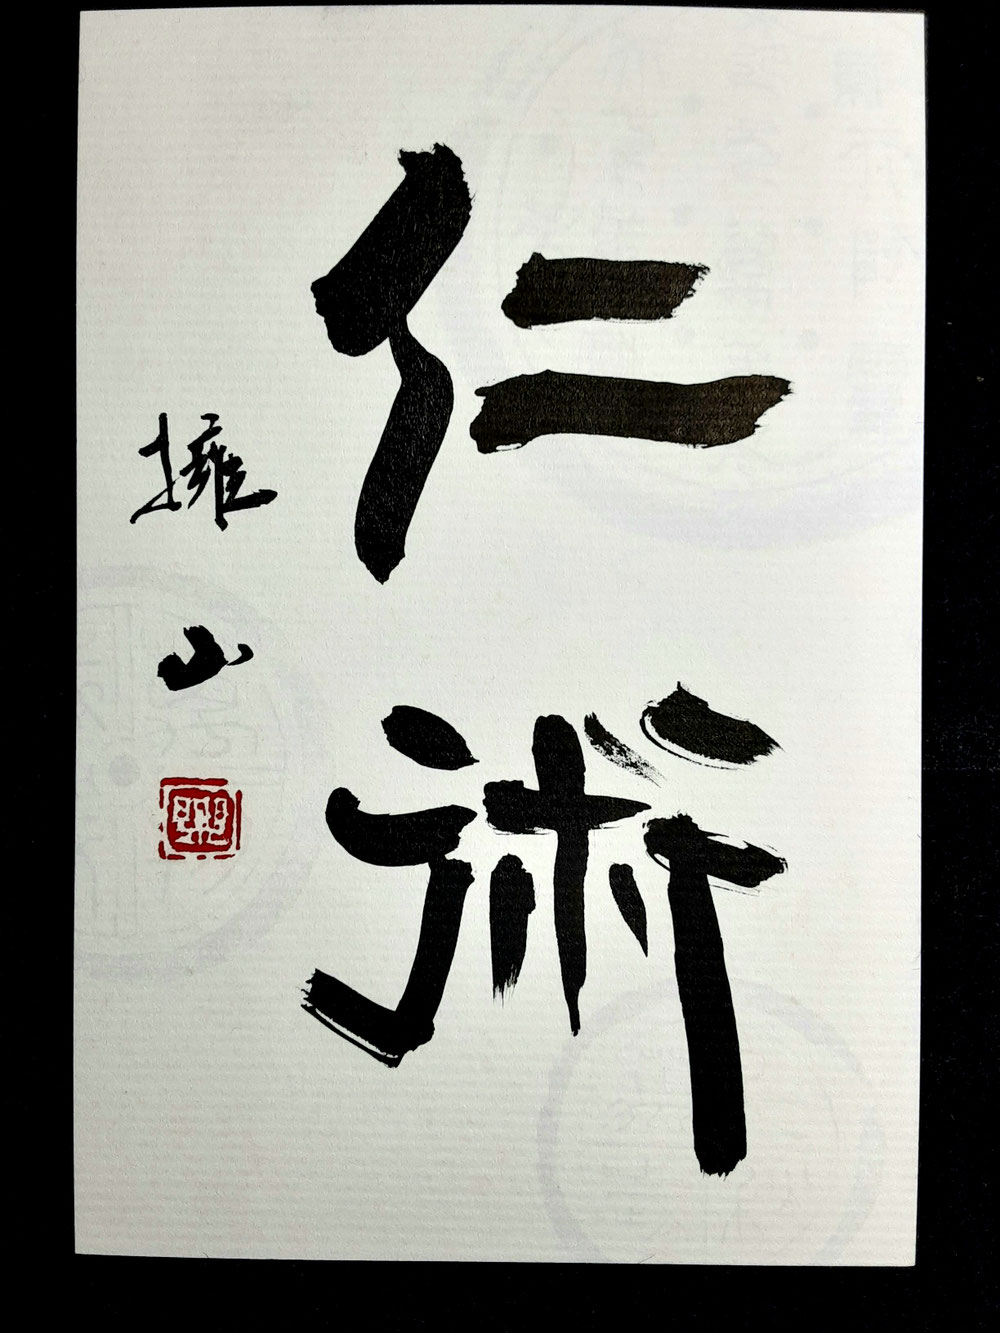 仁術
擁山